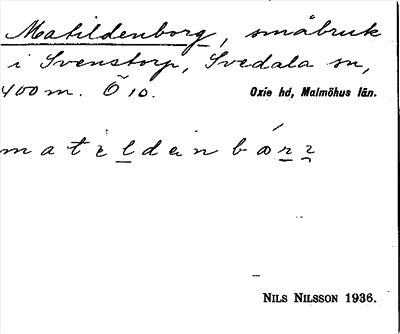 Matildenborg, småbruk
i Svenstorp, Svedala sn,
400 m. Ö 10. Oxie hd, Malmöhus län.
matildenbórr
NILS NILSSON 1936.